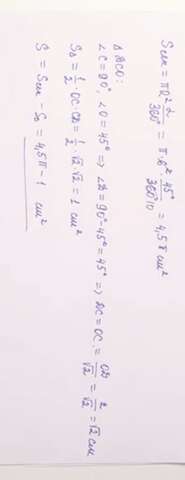 Sсек = πR² α/360° = π·6² 45°/360°10 = 4,5π см²
Δ DCO:
∠C = 90°, ∠O = 45° ⇒ ∠D = 90° - 45° = 45° ⇒ DC = OC = OD/√2 = 2/√2 = √2 см
SΔ = 1/2 · OC · CD = 1/2 · √2 · √2 = 1 см²
S = Sсек - SΔ = 4,5π - 1 см²